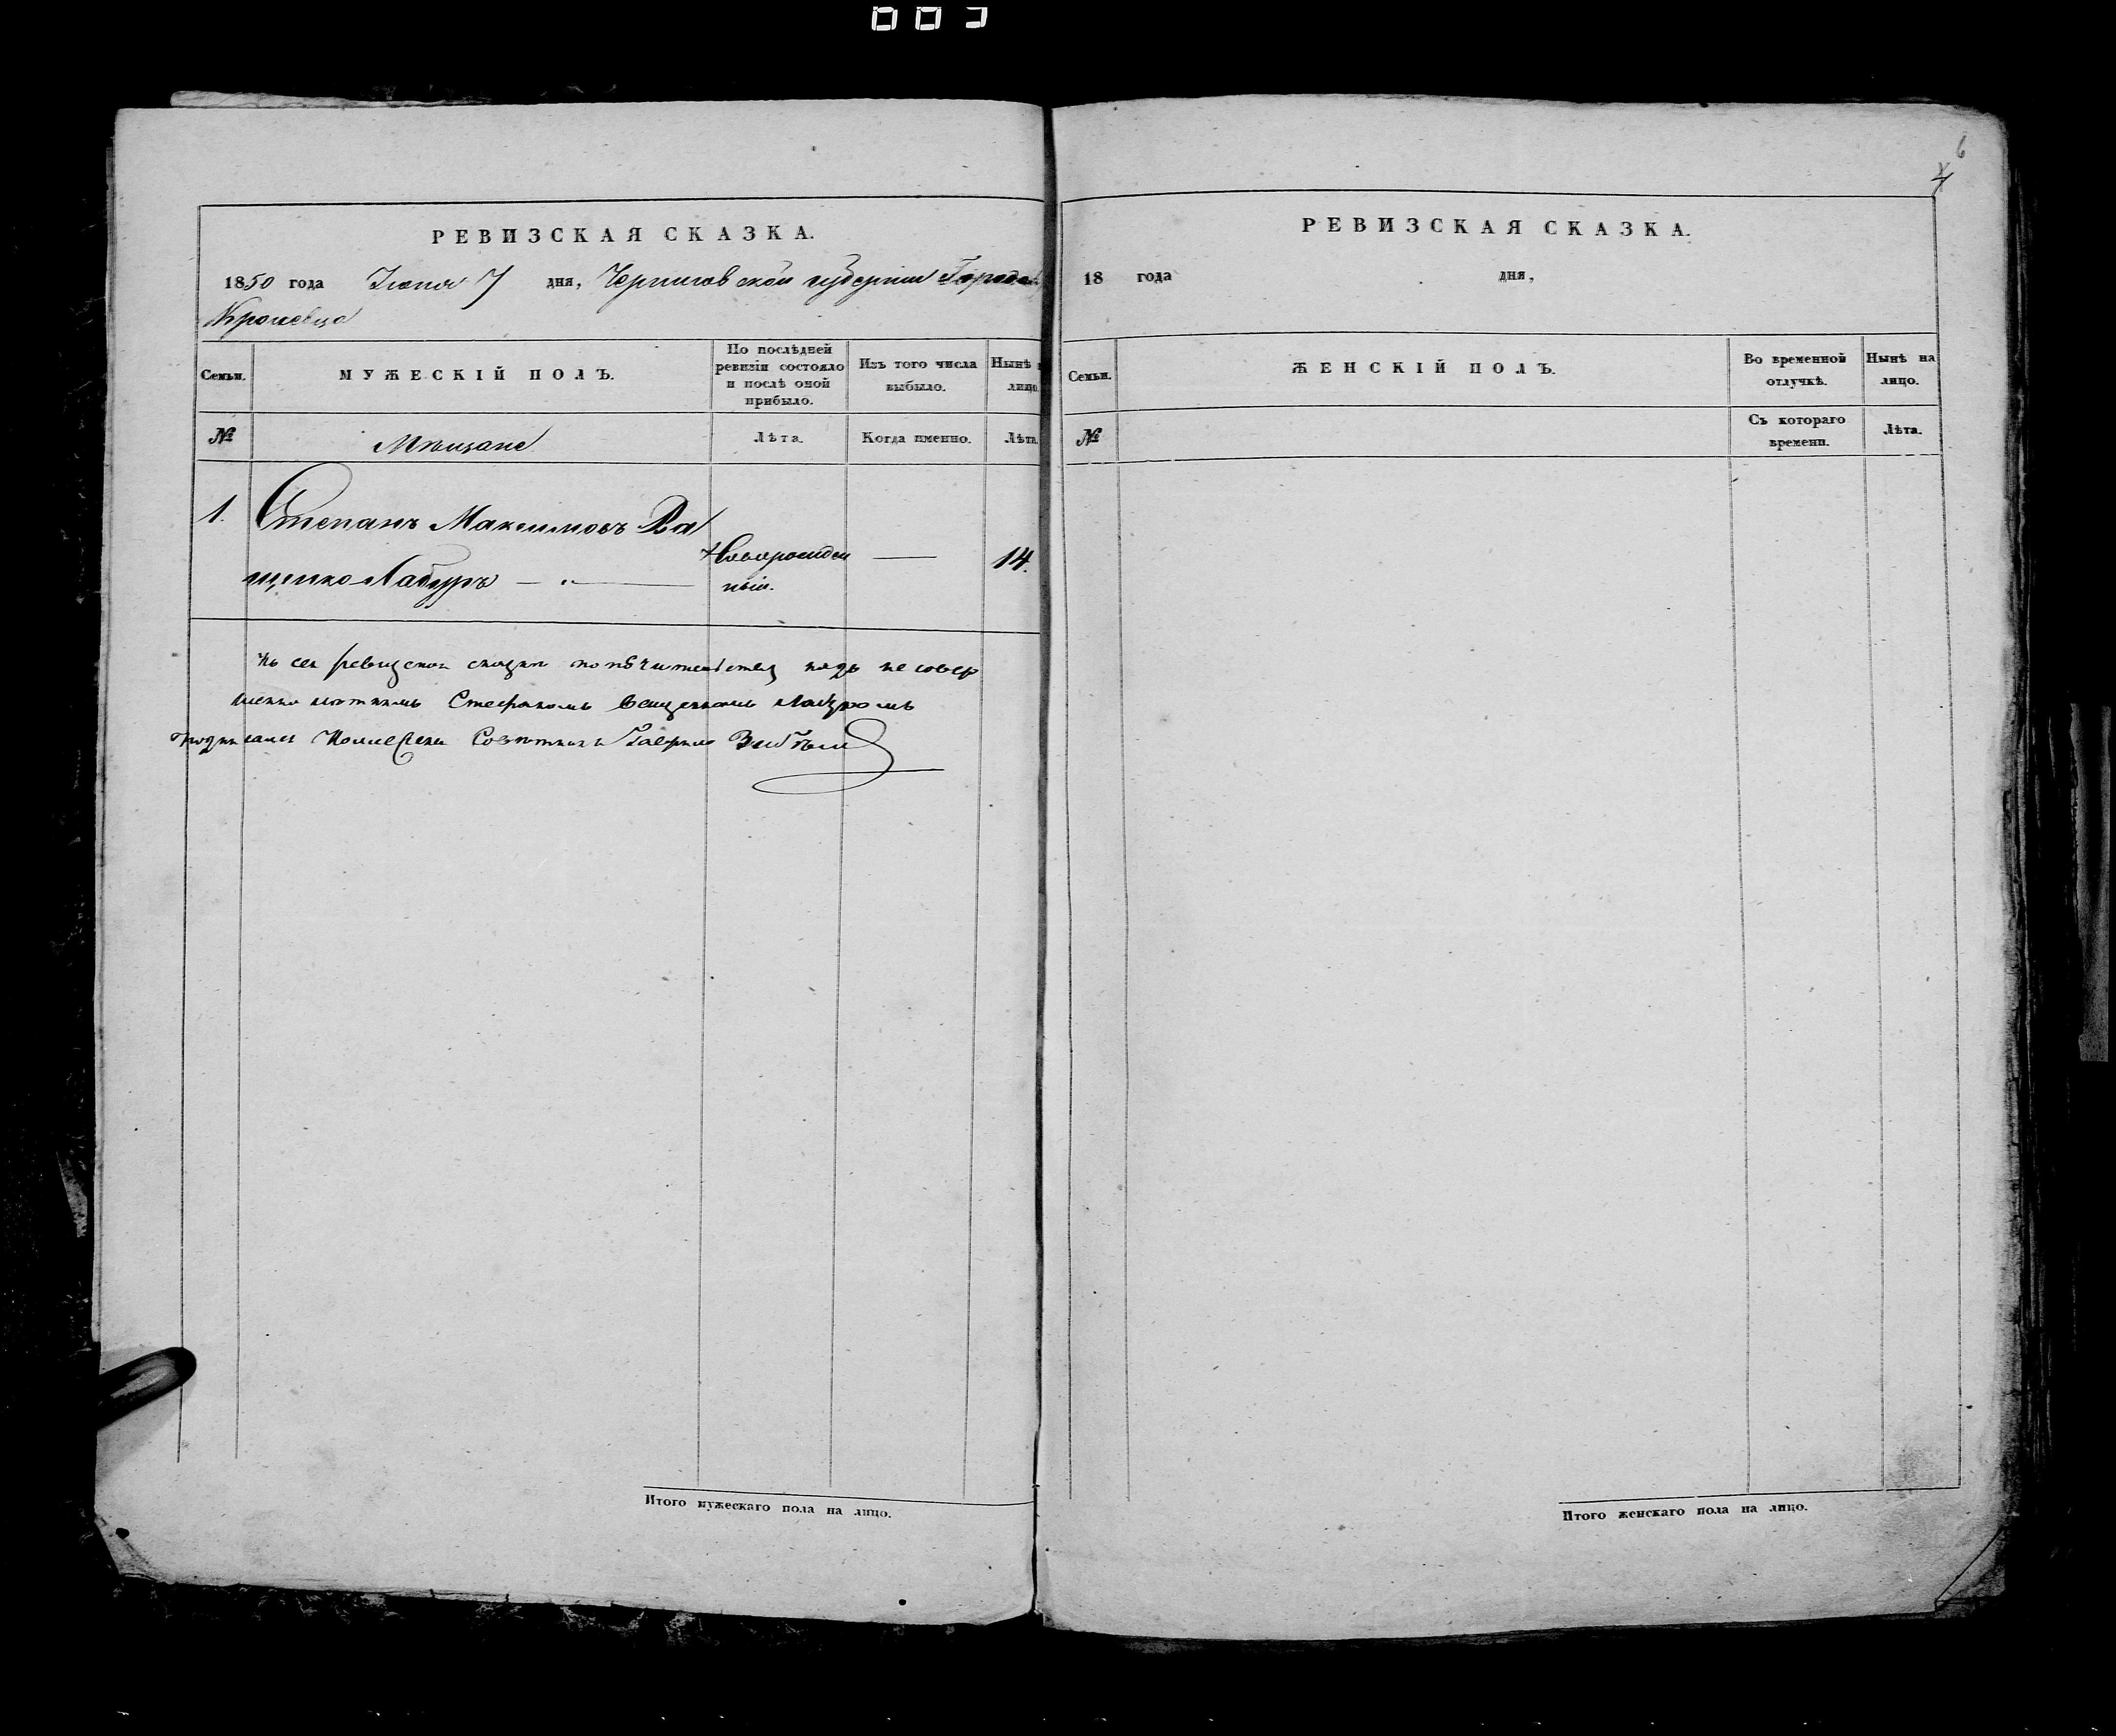 003
6
4
РЕВИЗСКАЯ СКАЗКА.
1850 года Іюня 7 дня, Черниговской губерніи Города
Кролевца
Семьи.
МУЖЕСКІЙ ПОЛЪ.
По послѣдней ревизіи состояло и послѣ оной прибыло.
Изъ того числа выбыло.
Нынѣ на лицо.
№
Мѣщане
Лѣта.
Когда именно.
Лѣта.
1.
Степанъ Максимовъ Ва
щенко Лабуръ
Новорожден
ный.
14.
Къ сей ревизской сказки по попѣчительству надъ не совер
шенно лѣтнимъ Стефаномъ Ващенкомъ Лабуромъ
подписался Совѣтникъ Гаврило
Итого мужескаго пола на лицо.
РЕВИЗСКАЯ СКАЗКА.
18 года дня,
Семьи.
ЖЕНСКІЙ ПОЛЪ.
Во временной отлучкѣ.
Нынѣ на лицо.
№
Съ котораго времени.
Лѣта.
Итого женскаго пола на лицо.